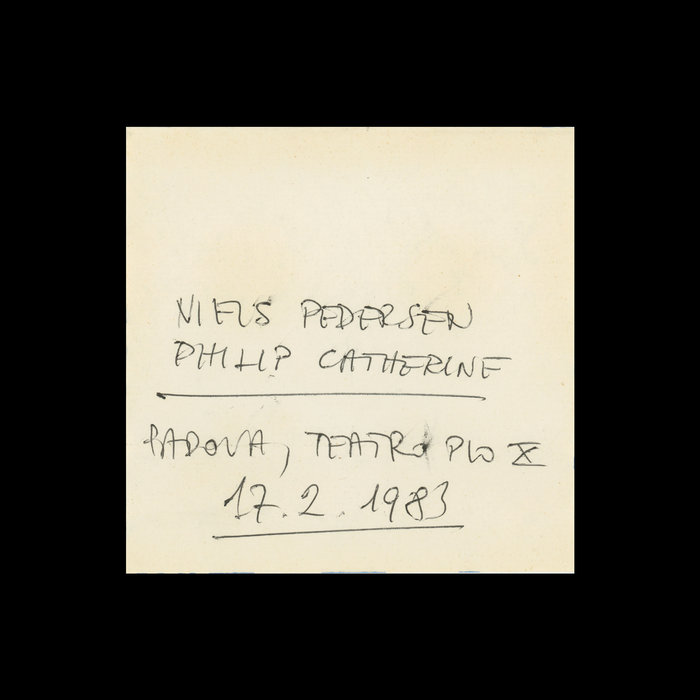 NIELS PEDERSEN
PHILIP CATHERINE
PADOVA, TEATRO PIO X
17.2.1983